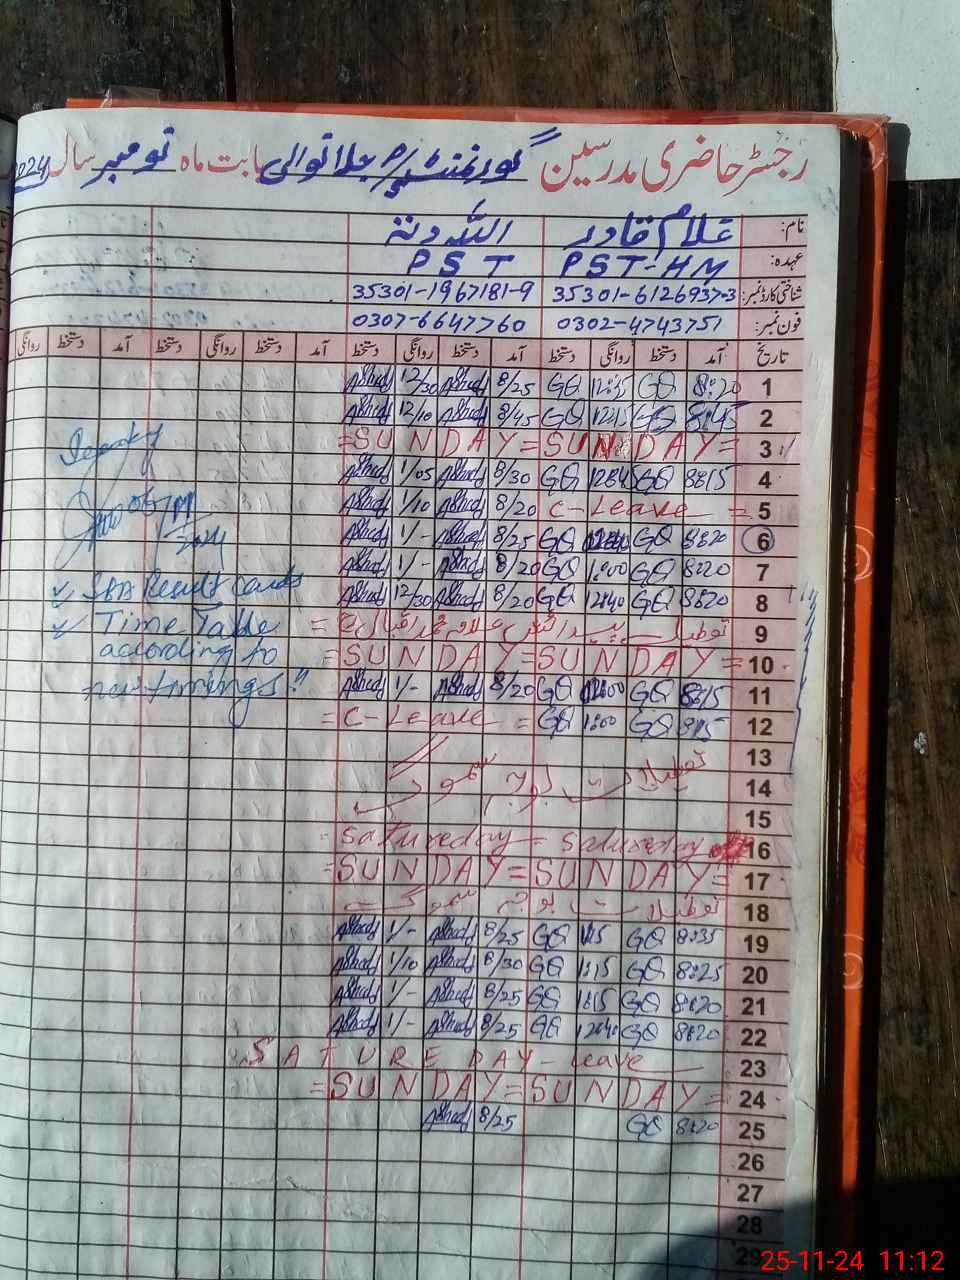 رجسٹر حاضری مدرسین گورنمنٹ بابت ماہ نومبر سال 2024
نام: غلام قادر اللہ دتہ
عہدہ: PST-HM PST
شناختی کارڈ نمبر: 35301-6126937-3 35301-1967181-9
فون نمبر: 0302-4743751 0307-6647760
تاریخ آمد دستخط روانگی دستخط آمد دستخط روانگی دستخط آمد دستخط روانگی دستخط آمد دستخط روانگی
1 8:20 GQ 12:35 GQ 8/25 Ashad 12/30 Ashad
2 8:45 GQ 12:15 GQ 8/45 Ashad 12/10 Ashad
3 =SUNDAY=SUNDAY=
4 8:15 GQ GQ 8/30 Ashad 1/05 Ashad
5 C-Leave = 8/20 Ashad 1/10 Ashad
6 8:20 GQ GQ 8/25 Ashad 1/- Ashad
7 8:20 GQ 1:00 GQ 8/20 Ashad 1/- Ashad
8 8:20 GQ 12:40 GQ 8/20 Ashad 12/30 Ashad
9 تعطیل پیدائش علامہ محمد اقبال =
10 =SUNDAY=SUNDAY=
11 8:15 GQ GQ 8/20 Ashad 1/- Ashad
12 8:15 GQ 1:00 GQ = C-Leave =
13
14 تعطیلات بوجہ سموگ
15
16 Satureday = Satureday
17 =SUNDAY=SUNDAY=
18 تعطیلات بوجہ سموگ
19 8:35 GQ GQ 8/25 Ashad 1/- Ashad
20 8:25 GQ 1:15 GQ 8/30 Ashad 1/10 Ashad
21 8:20 GQ 1:15 GQ 8/25 Ashad 1/- Ashad
22 8:20 GQ 12:40 GQ 8/25 Ashad 1/- Ashad
23 SATUREDAY-Leave
24 =SUNDAY=SUNDAY=
25 8:20 GQ 8/25 Ashad
26
27
28
29
SBA Result Cards
Time Table
according to
new timings"
25-11-24 11:12